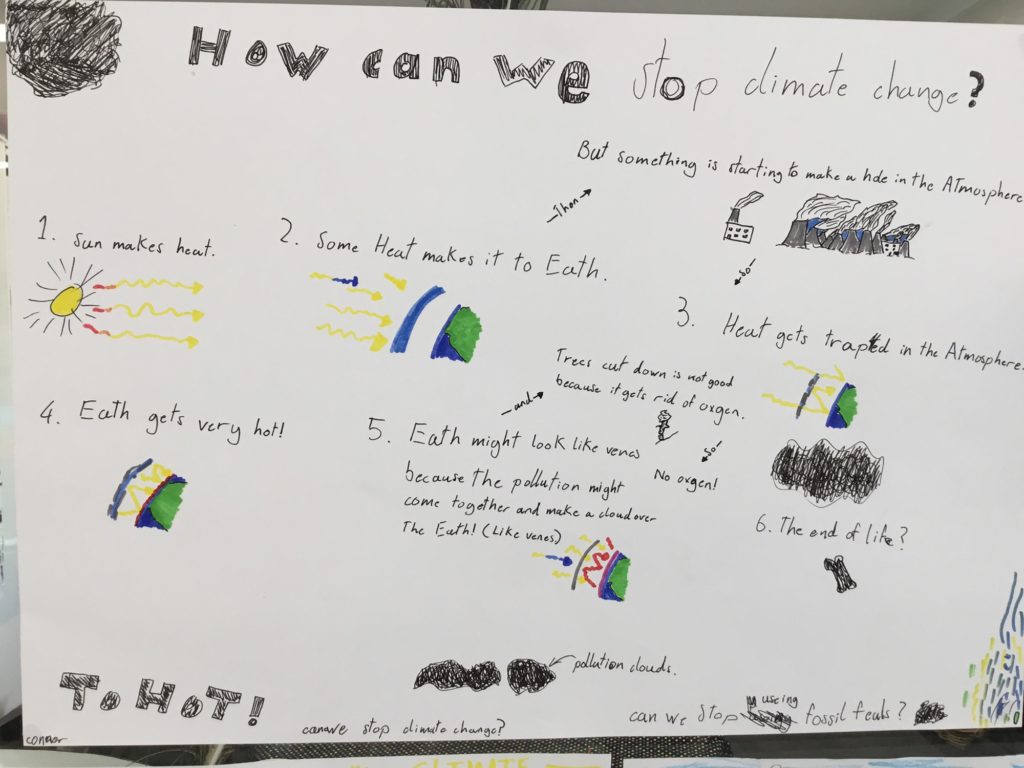 How can we stop climate change?
But something is starting to make a hole in the Atmosphere
Then
1. Sun makes heat.
2. Some Heat makes it to Eath.
so!
3. Heat gets trapted in the Atmosphere.
4. Eath gets very hot!
5. Eath might look like venes
because the pollution might
come together and make a cloud over
The Eath! (Like venes)
and
Trees cut down is not good
because it gets rid of oxgen.
so!
No oxgen!
6. The end of life?
pollution clouds.
To HoT!
can we stop climate change?
can we stop useing fossil feuls?
connor
CLIMATE